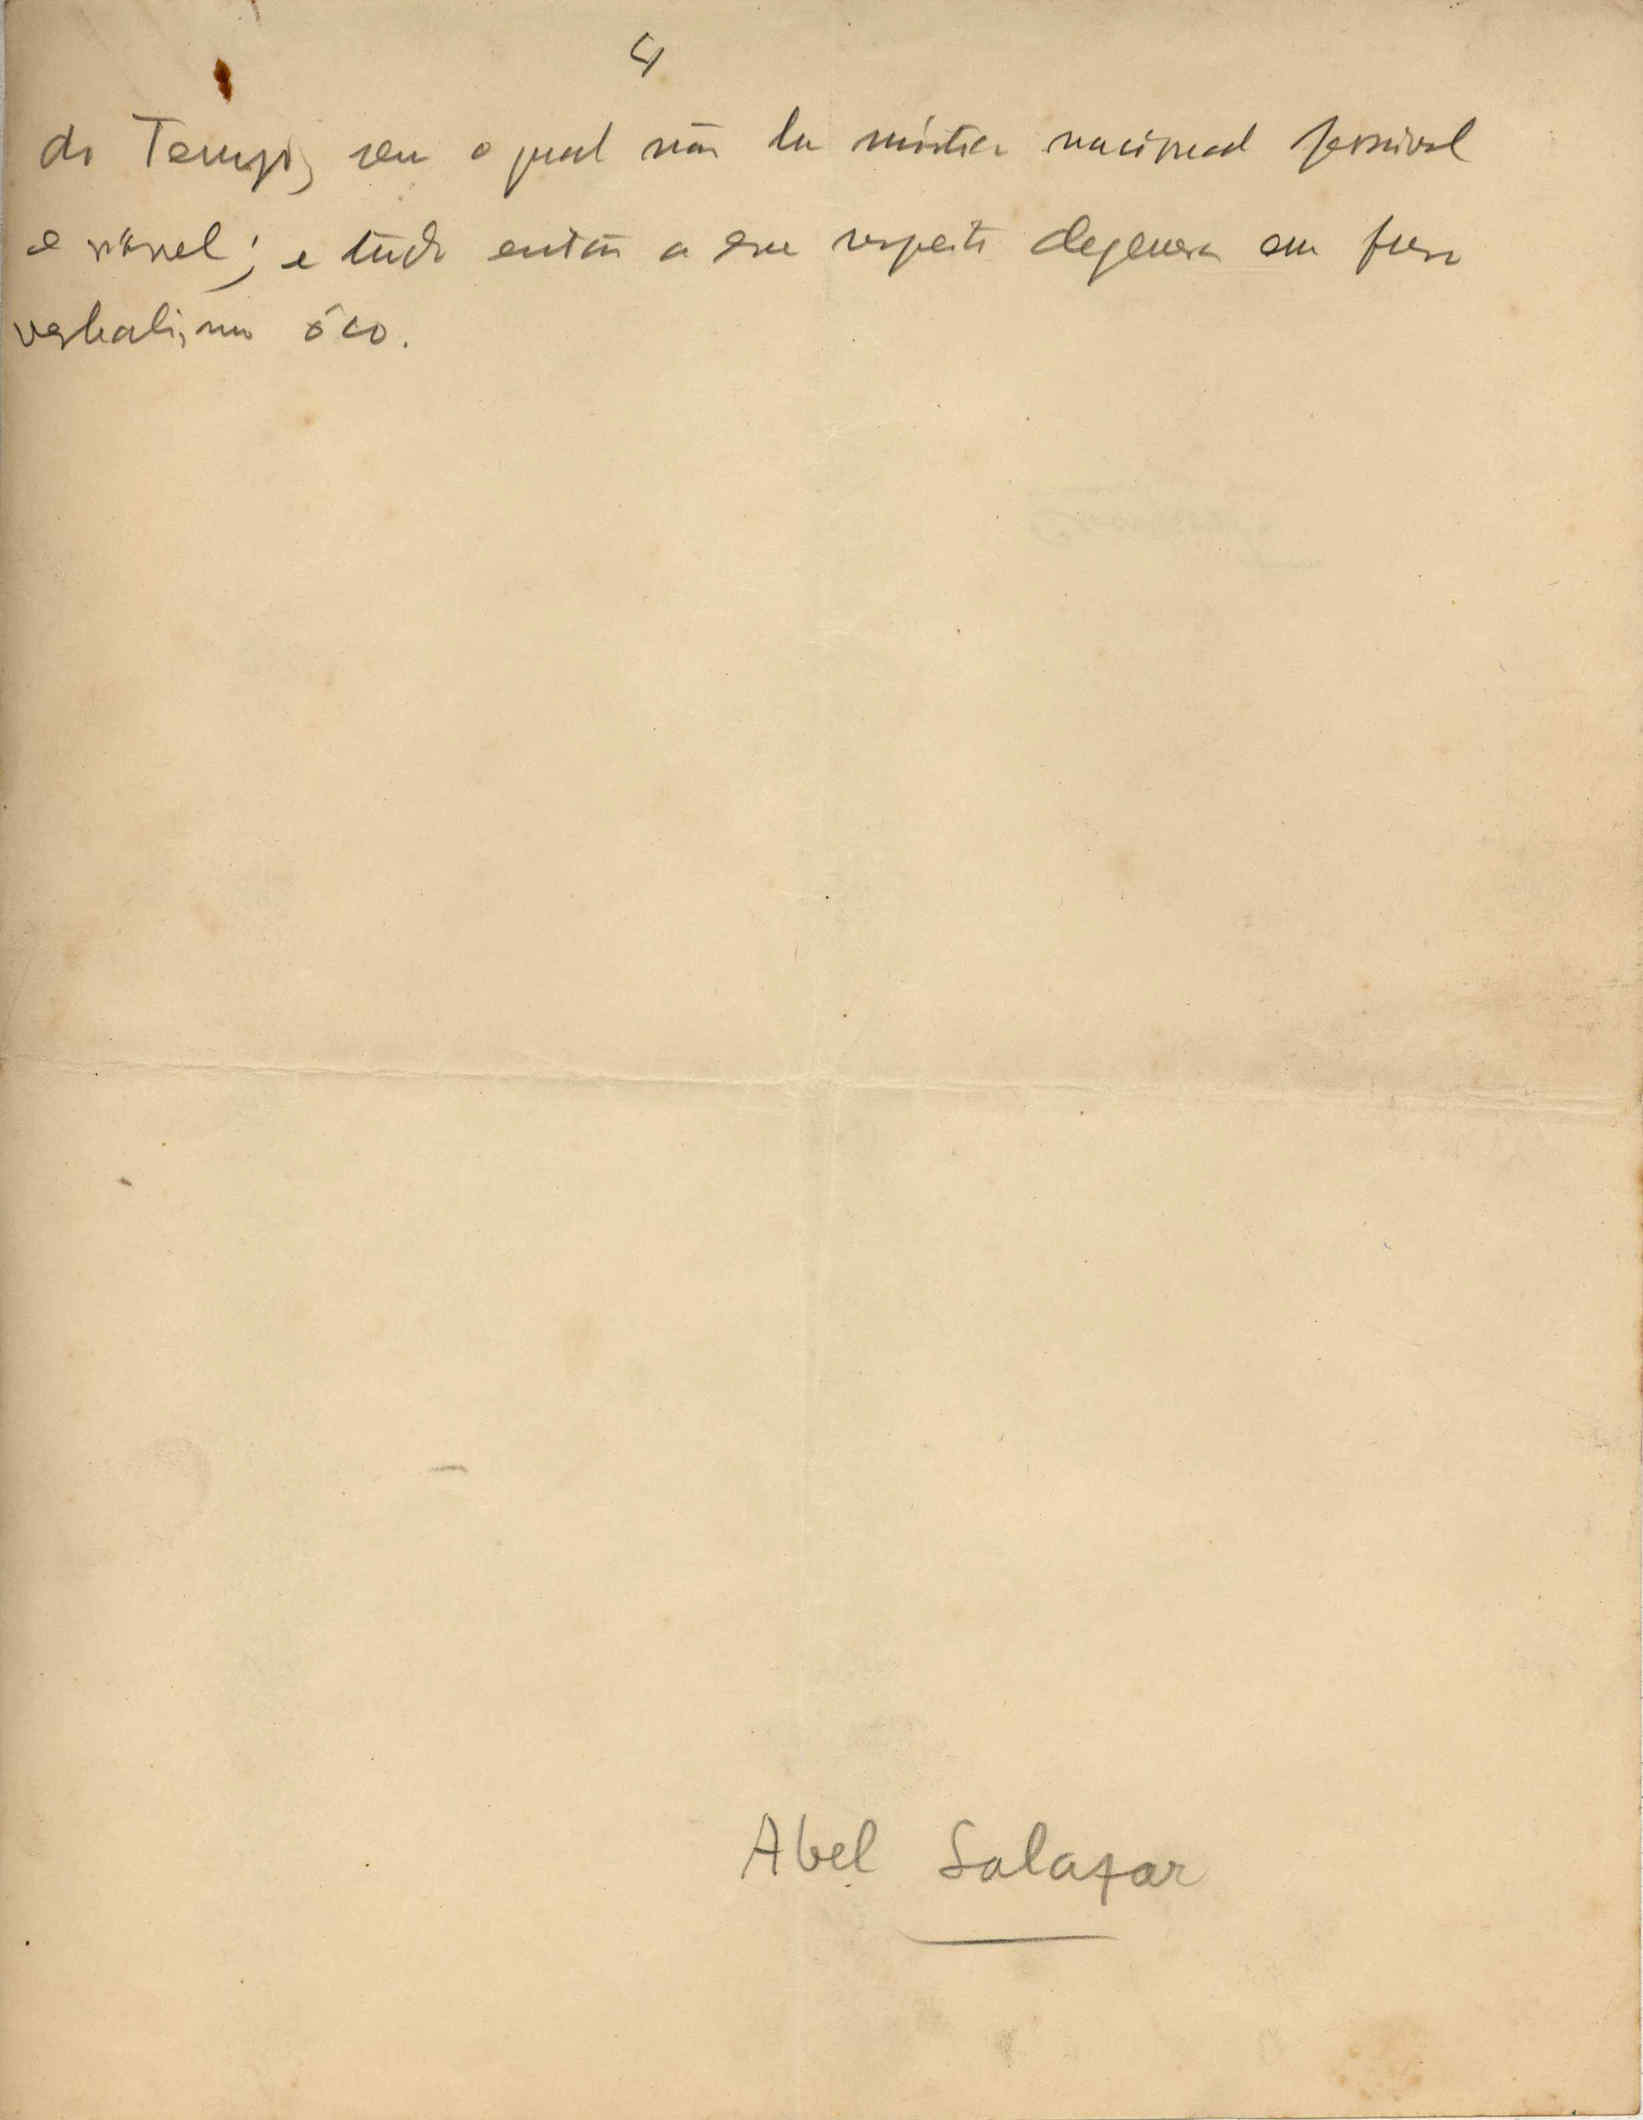 4
do Tempo, sem o qual não ha mistica nacional possivel
e viavel; e tudo então a esse respeito degenera em puro
verbalismo ôco.
Abel Salazar